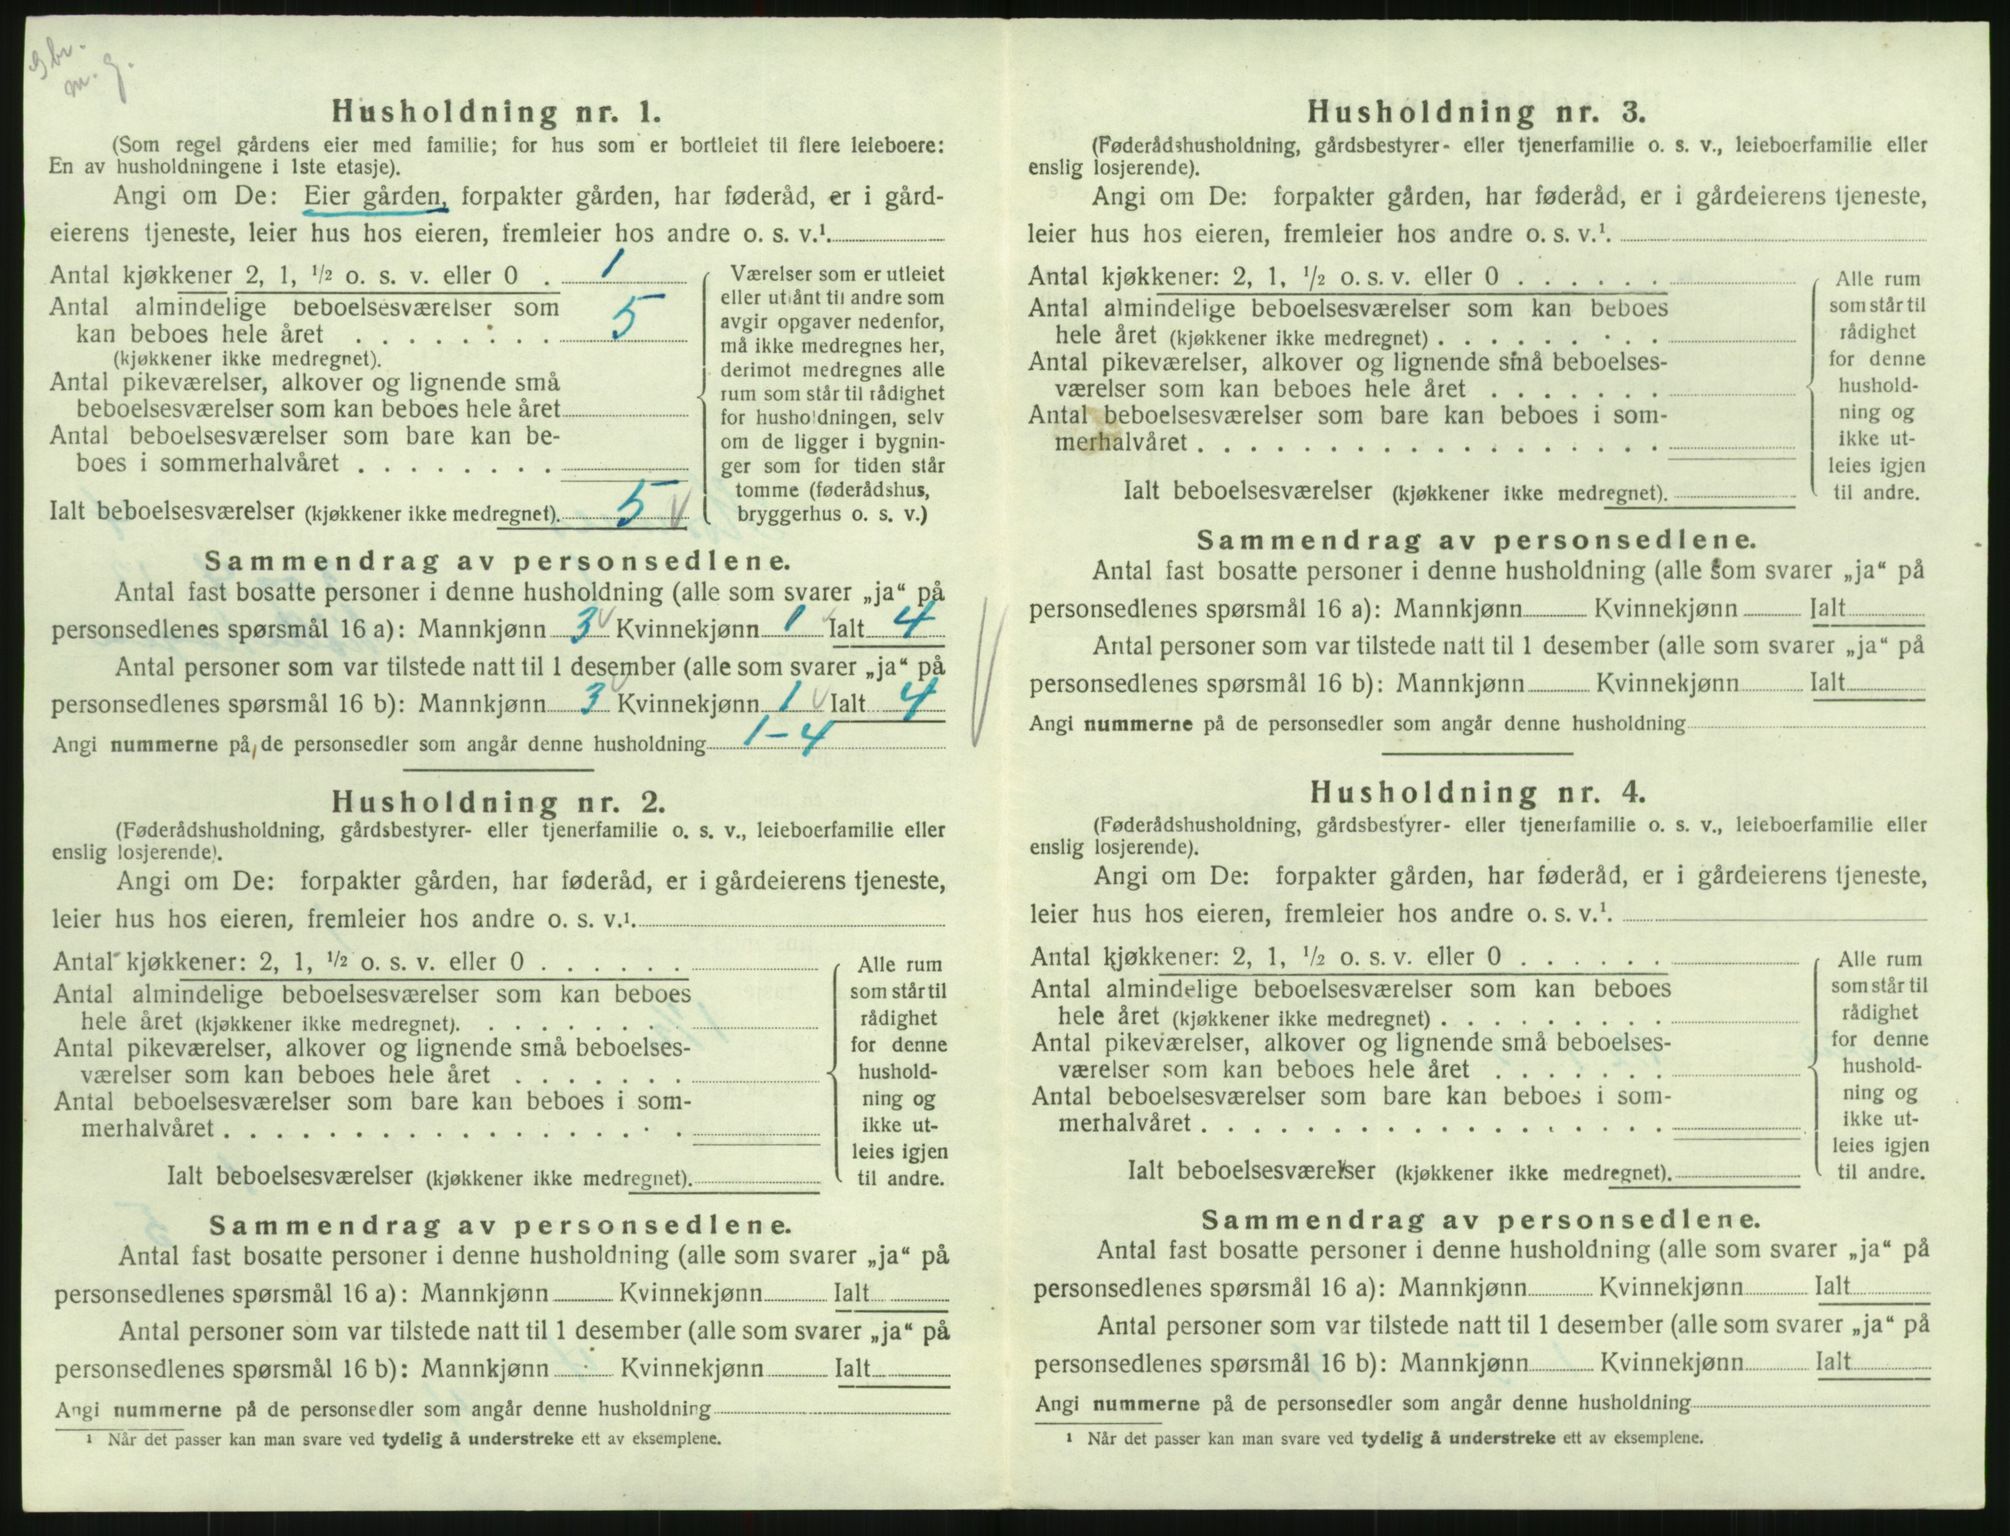 gbr.
m. g.
Husholdning nr. 1.
(Som regel gårdens eier med familie; for hus som er bortleiet til flere leieboere:
En av husholdningene i 1ste etasje).
Angi om De: Eier gården, forpakter gården, har føderåd, er i gård-
eierens tjeneste, leier hus hos eieren, fremleier hos andre o. s. v.¹.
Antal kjøkkener 2, 1, ½ o. s. v. eller 0 . 1
Antal almindelige beboelsesværelser som
kan beboes hele året . . . . . . . . 5
(kjøkkener ikke medregnet).
Antal pikeværelser, alkover og lignende små
beboelsesværelser som kan beboes hele året
Antal beboelsesværelser som bare kan be-
boes i sommerhalvåret . . . . . . . .
Ialt beboelsesværelser (kjøkkener ikke medregnet). 5
Værelser som er utleiet
eller utlånt til andre som
avgir opgaver nedenfor,
må ikke medregnes her,
derimot medregnes alle
rum som står til rådighet
for husholdningen, selv
om de ligger i bygnin-
ger som for tiden står
tomme (føderådshus,
bryggerhus o. s. v.)
Sammendrag av personsedlene.
Antal fast bosatte personer i denne husholdning (alle som svarer „ja“ på
personsedlenes spørsmål 16 a): Mannkjønn 3 Kvinnekjønn 1 Ialt 4
Antal personer som var tilstede natt til 1 desember (alle som svarer „ja“ på
personsedlenes spørsmål 16 b): Mannkjønn 3 Kvinnekjønn 1 Ialt 4
Angi nummerne på de personsedler som angår denne husholdning 1-4
Husholdning nr. 2.
(Føderådshusholdning, gårdsbestyrer- eller tjenerfamilie o. s. v., leieboerfamilie eller
enslig losjerende).
Angi om De: forpakter gården, har føderåd, er i gårdeierens tjeneste,
leier hus hos eieren, fremleier hos andre o. s. v.¹.
Antal kjøkkener: 2, 1, ½ o. s. v. eller 0 . . . . . .
Antal almindelige beboelsesværelser som kan beboes
hele året (kjøkkener ikke medregnet). . . . . . . . .
Antal pikeværelser, alkover og lignende små beboelses-
værelser som kan beboes hele året . . . . . . .
Antal beboelsesværelser som bare kan beboes i som-
merhalvåret . . . . . . . . . . . . . . . . . .
Ialt beboelsesværelser (kjøkkener ikke medregnet).
Alle rum
som står til
rådighet
for denne
hushold-
ning og
ikke ut-
leies igjen
til andre.
Sammendrag av personsedlene.
Antal fast bosatte personer i denne husholdning (alle som svarer „ja“ på
personsedlenes spørsmål 16 a): Mannkjønn Kvinnekjønn Ialt
Antal personer som var tilstede natt til 1 desember (alle som svarer „ja“ på
personsedlenes spørsmål 16 b): Mannkjønn Kvinnekjønn Ialt
Angi nummerne på de personsedler som angår denne husholdning
¹ Når det passer kan man svare ved tydelig å understreke ett av eksemplene.
Husholdning nr. 3.
(Føderådshusholdning, gårdsbestyrer- eller tjenerfamilie o. s. v., leieboerfamilie eller
enslig losjerende).
Angi om De: forpakter gården, har føderåd, er i gårdeierens tjeneste,
leier hus hos eieren, fremleier hos andre o. s. v.¹.
Antal kjøkkener: 2, 1, ½ o. s. v. eller 0 . . . . . .
Antal almindelige beboelsesværelser som kan beboes
hele året (kjøkkener ikke medregnet) . . . . . . . . .
Antal pikeværelser, alkover og lignende små beboelses-
værelser som kan beboes hele året . . . . . . .
Antal beboelsesværelser som bare kan beboes i som-
merhalvåret . . . . . . . . . . . . . . . . . .
Ialt beboelsesværelser (kjøkkener ikke medregnet).
Alle rum
som står til
rådighet
for denne
hushold-
ning og
ikke ut-
leies igjen
til andre.
Sammendrag av personsedlene.
Antal fast bosatte personer i denne husholdning (alle som svarer „ja“ på
personsedlenes spørsmål 16 a): Mannkjønn Kvinnekjønn Ialt
Antal personer som var tilstede natt til 1 desember (alle som svarer „ja“ på
personsedlenes spørsmål 16 b): Mannkjønn Kvinnekjønn Ialt
Angi nummerne på de personsedler som angår denne husholdning
Husholdning nr. 4.
(Føderådshusholdning, gårdsbestyrer- eller tjenerfamilie o. s. v., leieboerfamilie eller
enslig losjerende).
Angi om De: forpakter gården, har føderåd, er i gårdeierens tjeneste,
leier hus hos eieren, fremleier hos andre o. s. v.¹.
Antal kjøkkener: 2, 1, ½ o. s. v. eller 0 . . . . . .
Antal almindelige beboelsesværelser som kan beboes
hele året (kjøkkener ikke medregnet) . . . . . . . . .
Antal pikeværelser, alkover og lignende små beboelses-
værelser som kan beboes hele året . . . . . . .
Antal beboelsesværelser som bare kan beboes i som-
merhalvåret . . . . . . . . . . . . . . . . . .
Ialt beboelsesværelser (kjøkkener ikke medregnet).
Alle rum
som står til
rådighet
for denne
hushold-
ning og
ikke ut-
leies igjen
til andre.
Sammendrag av personsedlene.
Antal fast bosatte personer i denne husholdning (alle som svarer „ja“ på
personsedlenes spørsmål 16 a): Mannkjønn Kvinnekjønn Ialt
Antal personer som var tilstede natt til 1 desember (alle som svarer „ja“ på
personsedlenes spørsmål 16 b): Mannkjønn Kvinnekjønn Ialt
Angi nummerne på de personsedler som angår denne husholdning
¹ Når det passer kan man svare ved tydelig å understreke ett av eksemplene.